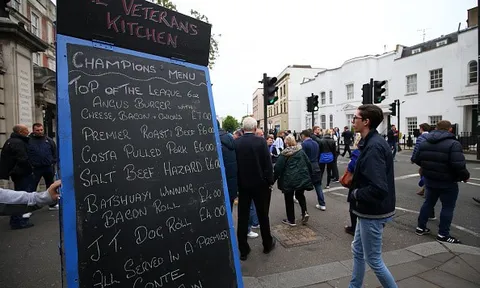 VETERANS
KITCHEN
CHAMPIONS MENU
TOP OF THE LEAGUE 6oz
ANGUS BURGER WITH
CHEESE, BACON & ONIONS £7.00
PREMIER ROAST BEEF £6.00
COSTA PULLED PORK £6.00
SALT BEEF HAZARD £6.00
BATSHUAYI WINNING
BACON ROLL £4.00
J.T. DOG ROLL £4.00
ALL SERVED IN A PREMIER
CONTE